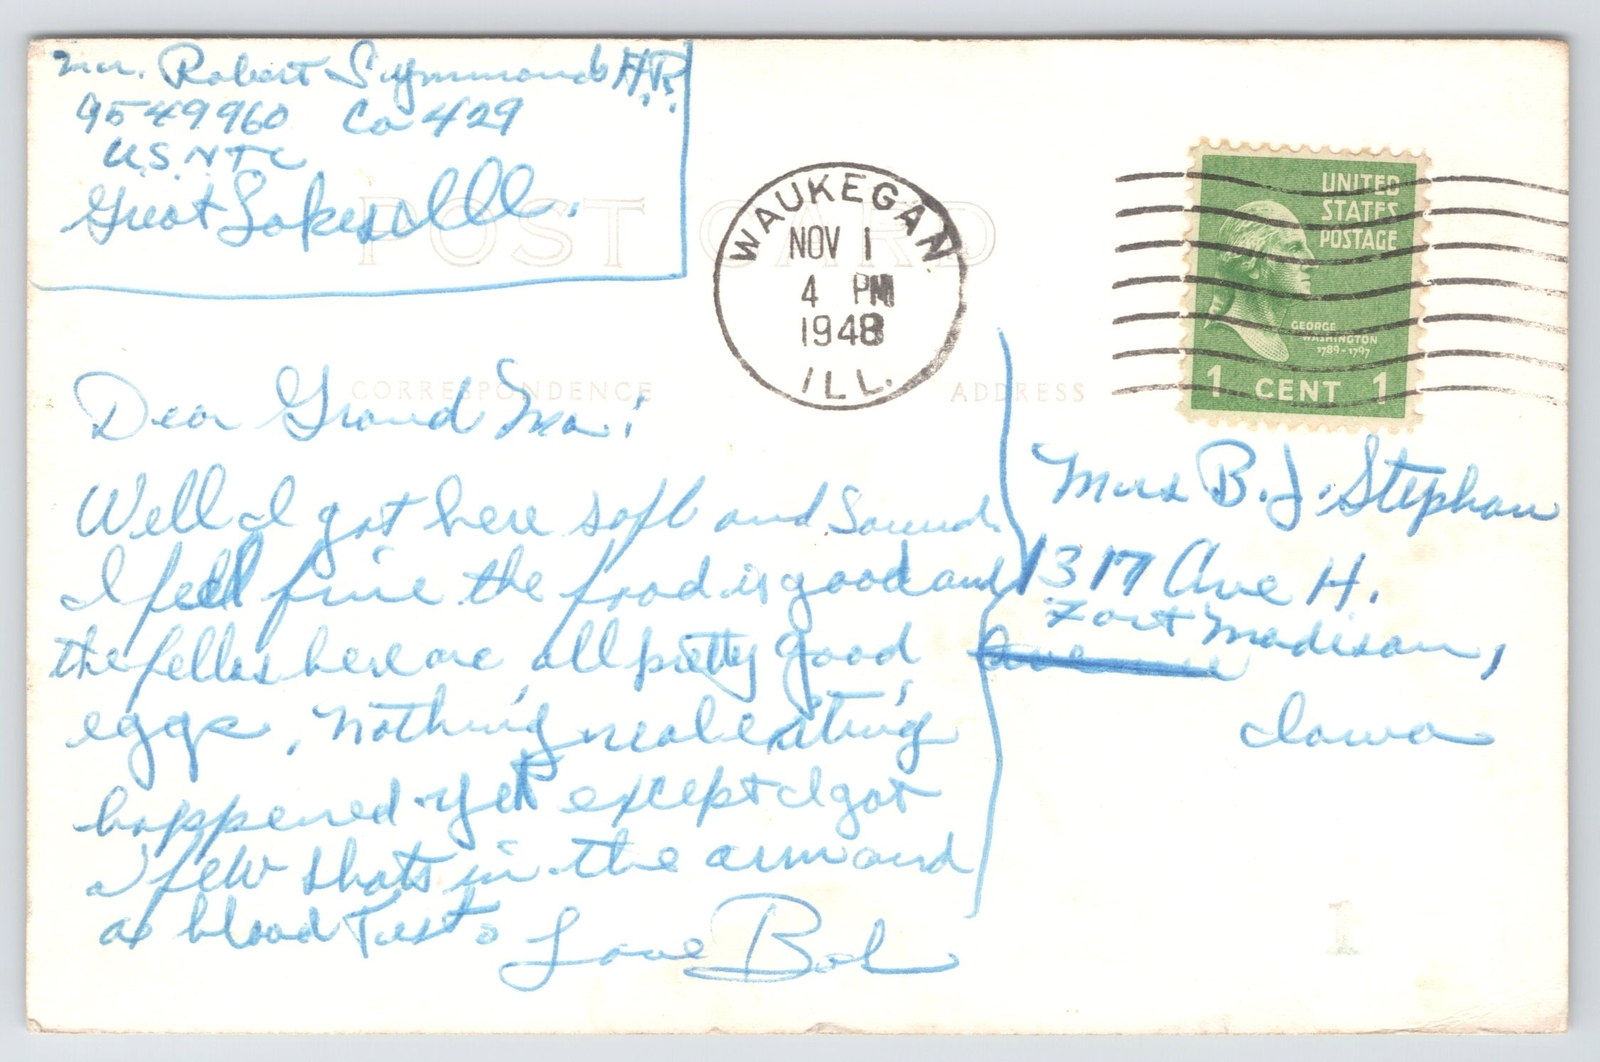 Mr. Robert Symmonds H.R.
9549960 Co 429
U.S.N.T.C
Great Lakes Ill.
POST CARD
WAUKEGAN
NOV 1
4 PM
1948
ILL.
UNITED
STATES
POSTAGE
GEORGE
WASHINGTON
1789-1797
1 CENT 1
CORRESPONDENCE
ADDRESS
Dear Grand Ma:
Well I got here safe and Sound
I feel fine the food is good and
the fellas here are all pretty good
eggs, nothing real exiting
happened yet except I got
a few shots in the arm and
a blood test.
Love Bob
Mrs B. J. Stephan
1317 Ave H.
Fort Madison,
Iowa
1